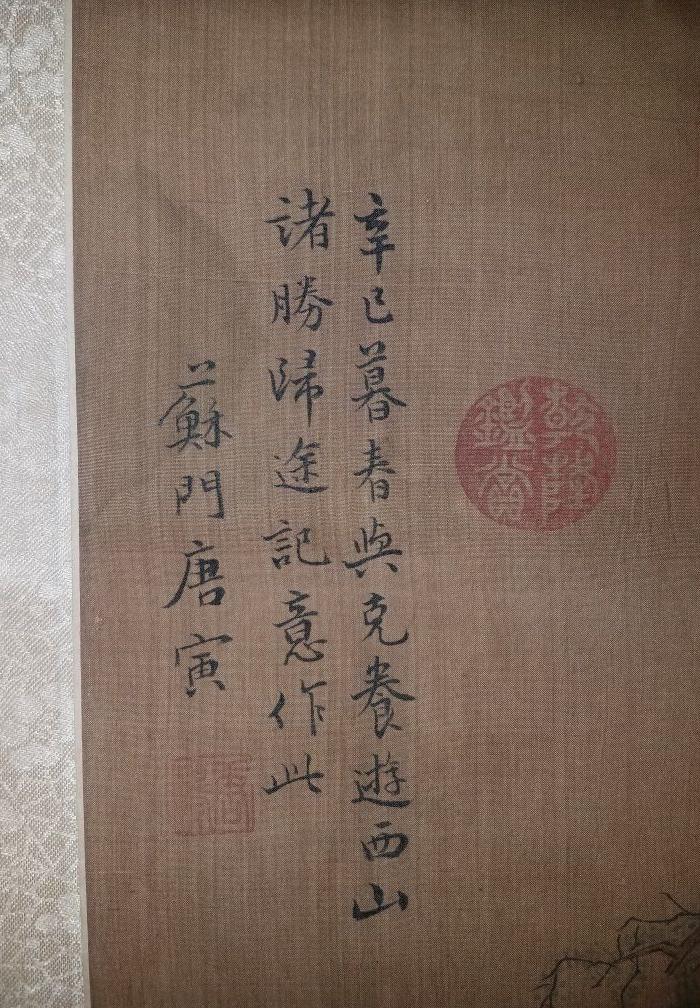 乾隆
鑑賞
辛巳暮春與克養遊西山
諸勝歸途記意作此
蘇門唐寅